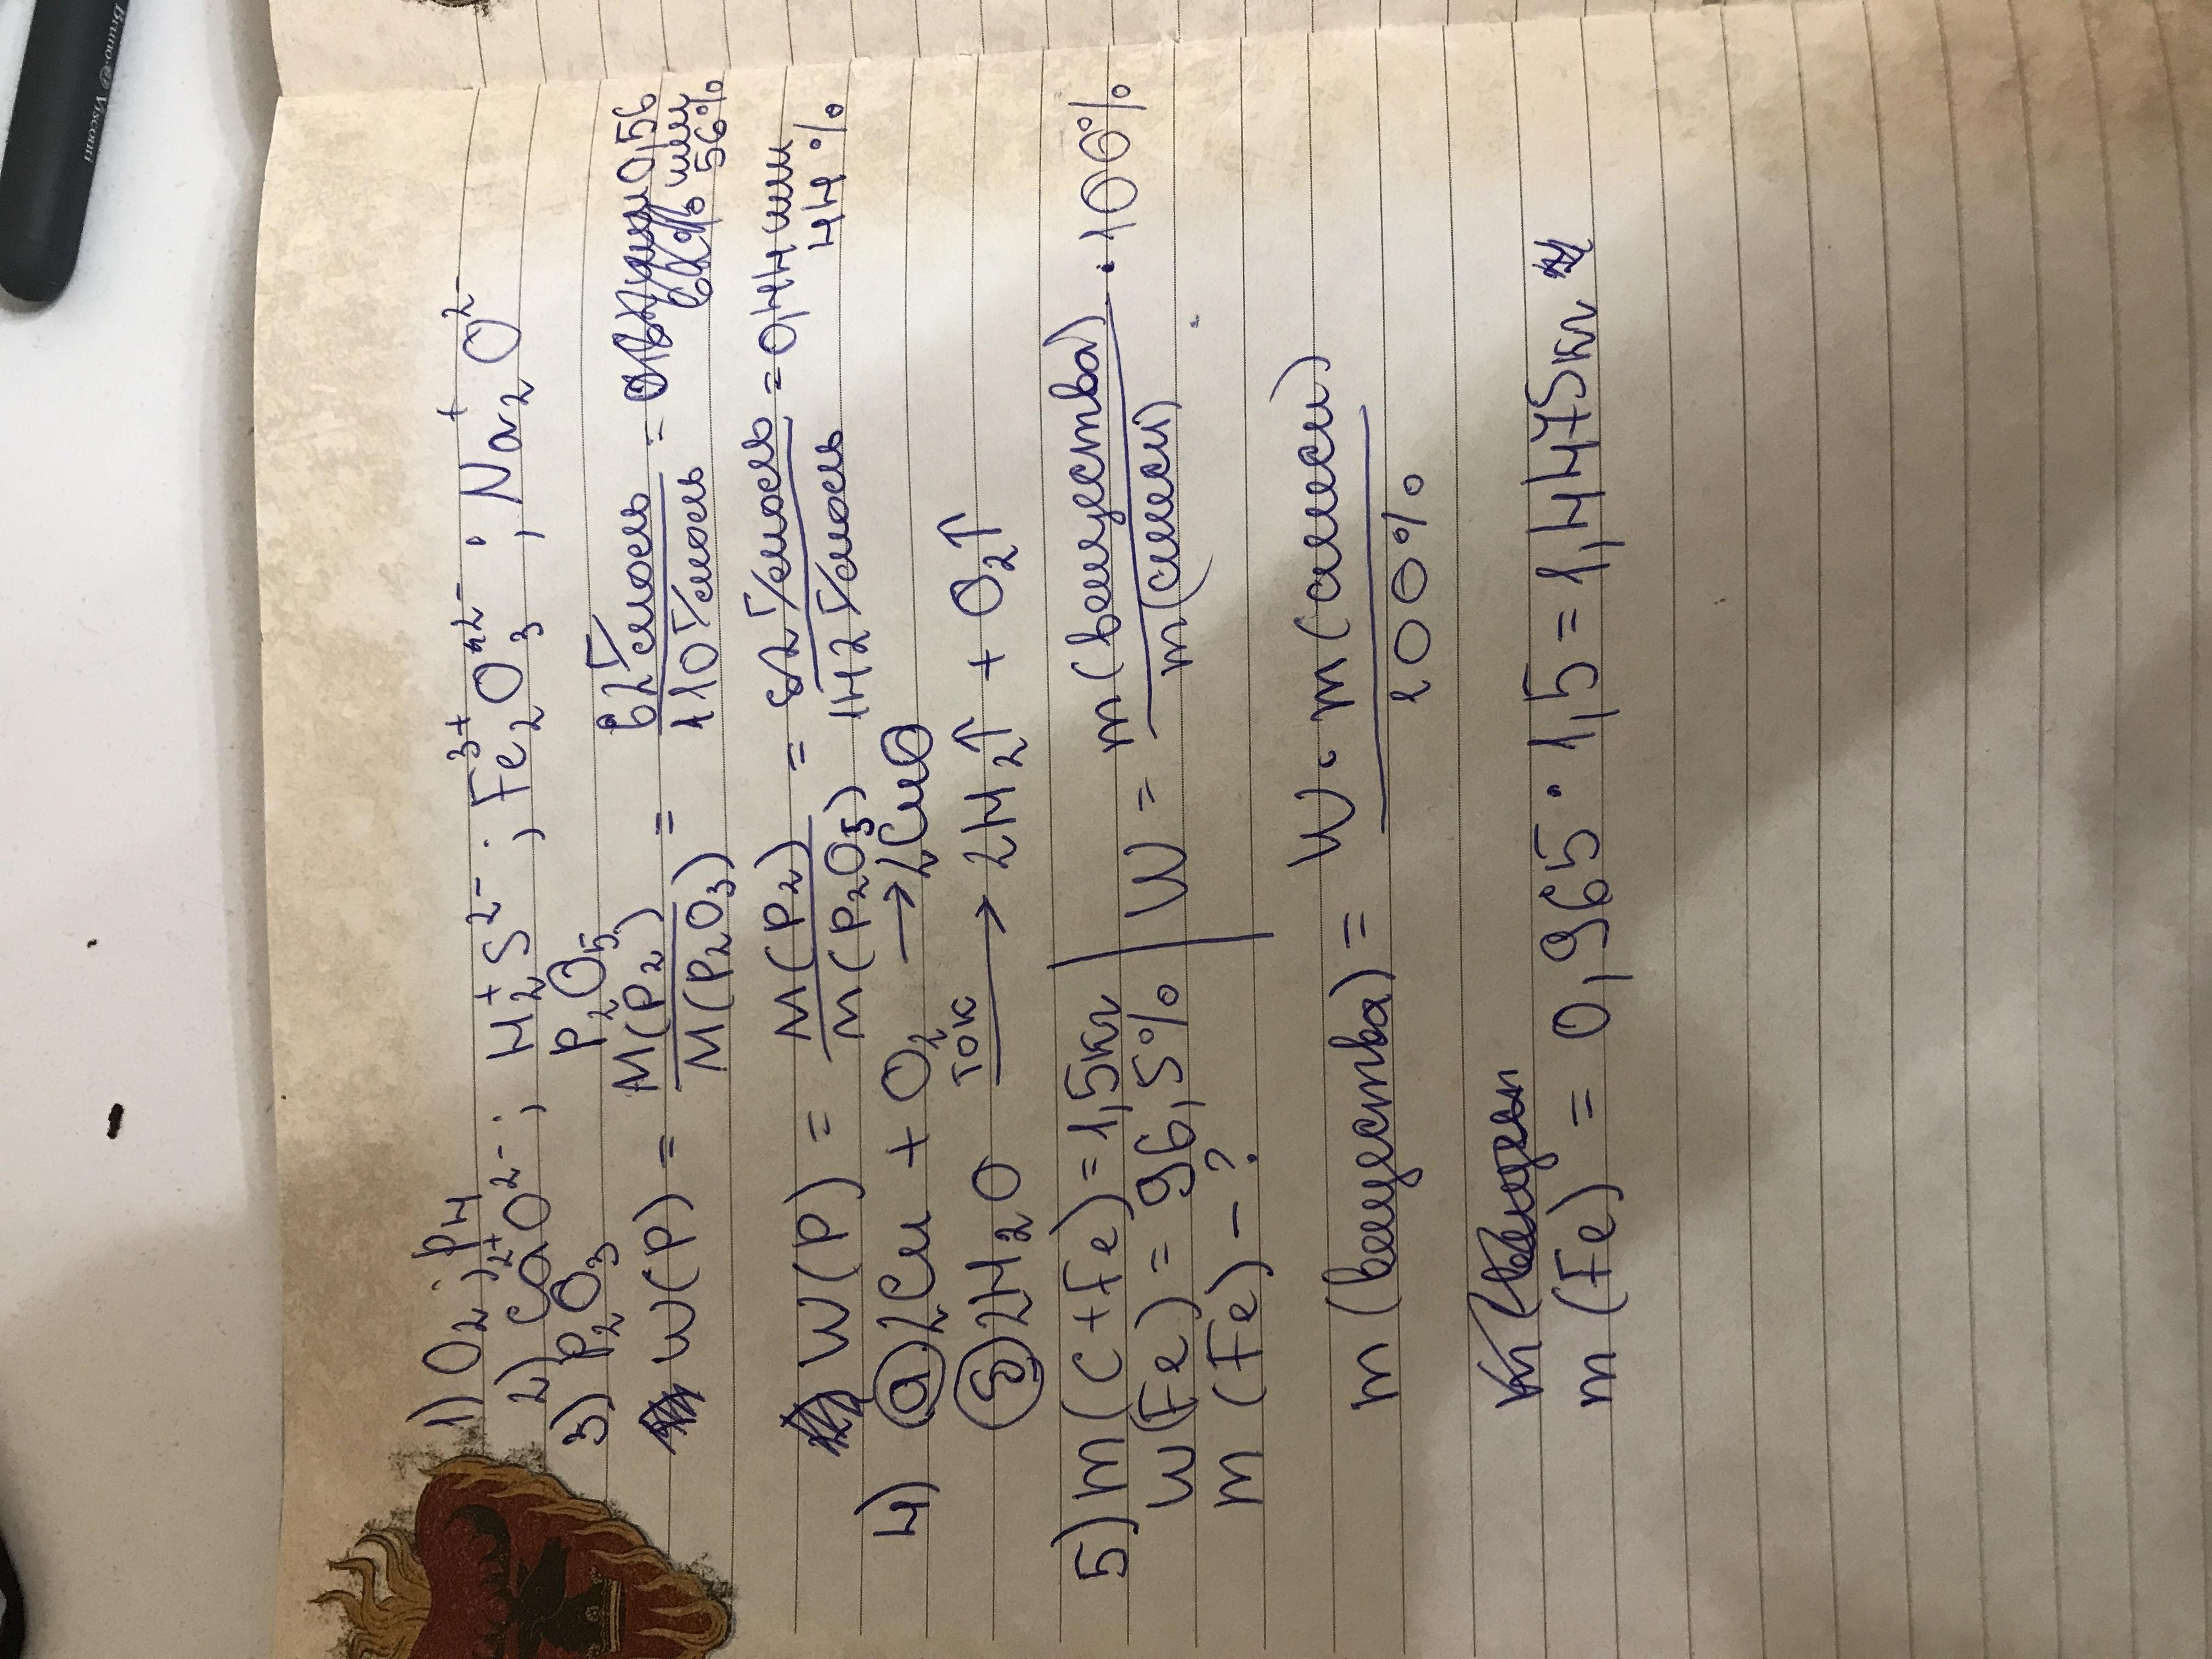 Bruno Visconti
1) O₂; PH
2) Ca²⁺O²⁻; H₂⁺S²⁻; Fe₂³⁺O₃²⁻; Na₂⁺O²⁻
3) P₂O₃ P₂O₅
W(P) = M(P₂)/M(P₂O₃) = 62 г/моль / 110 г/моль = 0,56 или 56%
W(P) = M(P₂)/m(P₂O₅) = 62 г/моль / 142 г/моль = 0,44 или 44%
4) а) 2Cu + O₂ → 2CuO
б) 2H₂O ток → 2H₂↑ + O₂↑
5) m(C+Fe) = 1,5кг | W = m(вещества)/m(смеси) · 100%
w(Fe) = 96,5%
m(Fe) - ?
m(вещества) = W · m(смеси) / 100%
m(Fe) = 0,965 · 1,5 = 1,4475кг